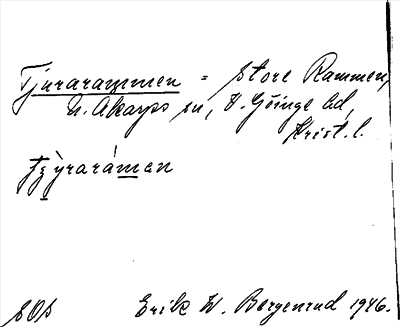 Tjurarammen = Store Rammen,
N. Åkarps sn, V. Göinge hd,
Krist. l.
tjùrarámen
SOS Erik W. Bergenrud 1946.